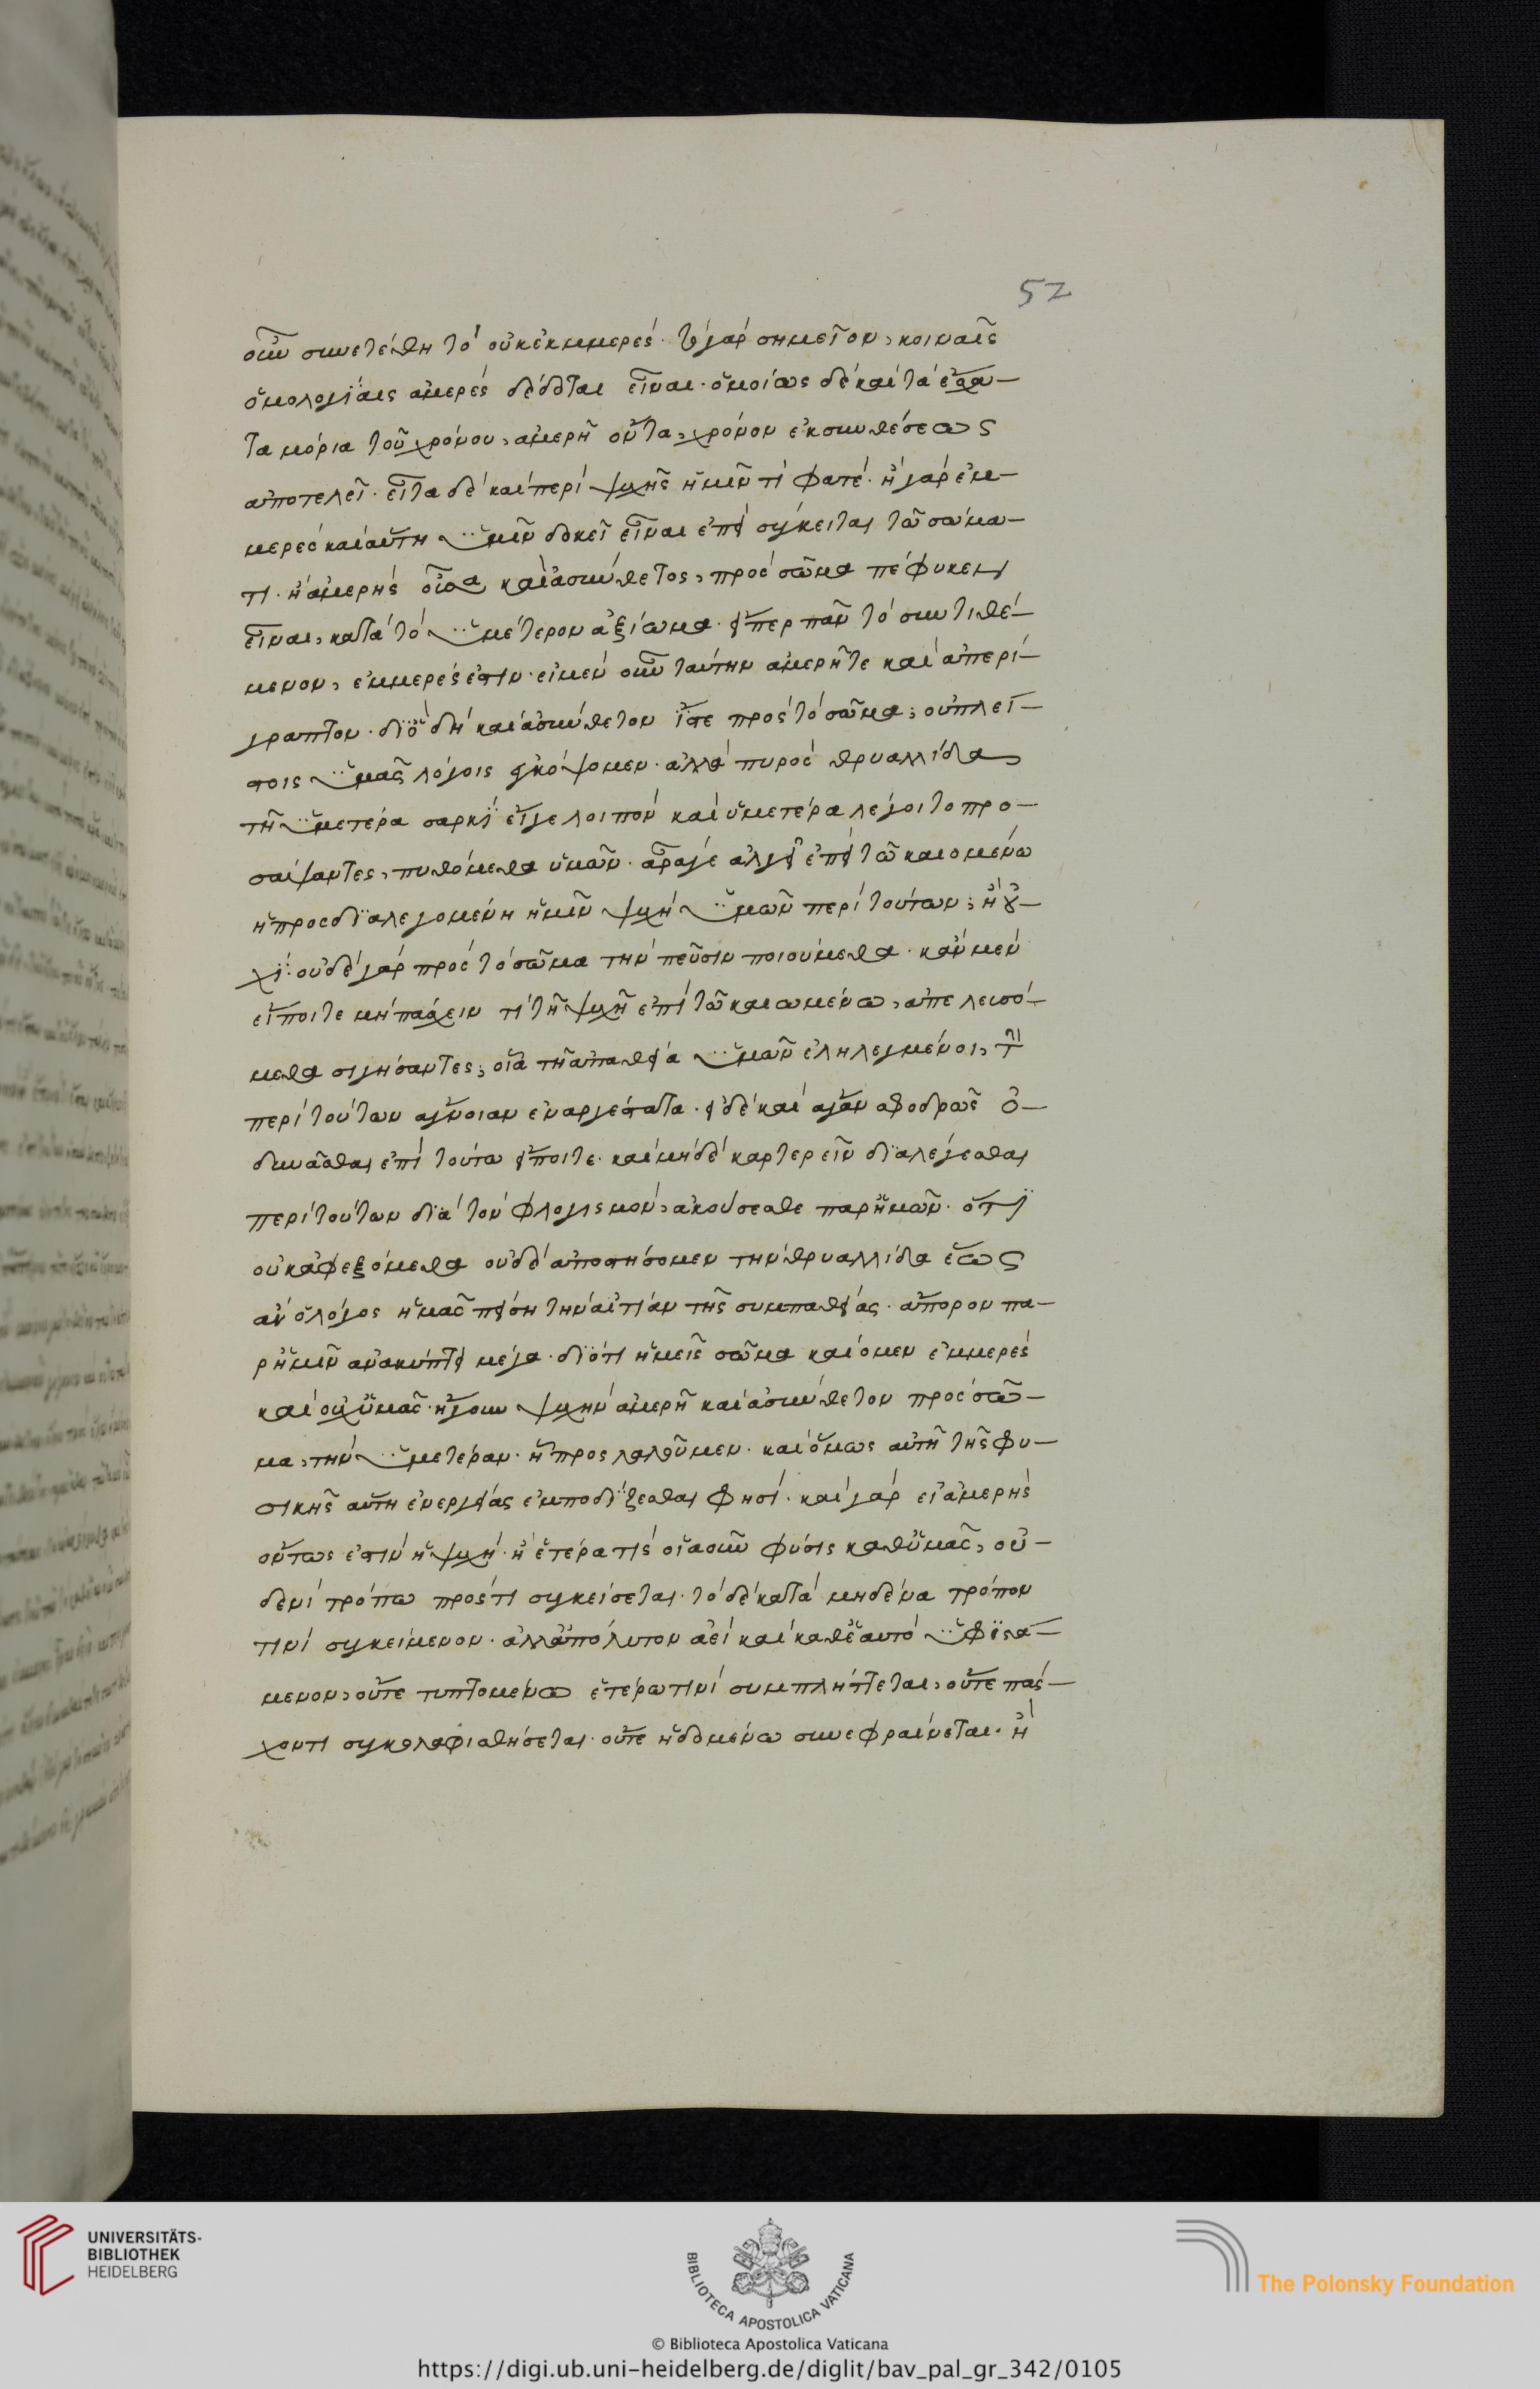 52
οὖν συνετέθη τὸ οὐκ ἐκμμερές· τὸ γὰρ σημεῖον, κοιναῖς
ὁμολογίαις ἀμερὲς δέδοται εἶναι· ὁμοίως δὲ καὶ τὰ ἔσχα-
τα μόρια τοῦ χρόνου, ἀμερῆ ὄντα, χρόνον ἐκ συνθέσεως
ἀποτελεῖ· εἶτα δὲ καὶ περὶ ψυχῆς ἡμῖν τί φατέ· ἢ γὰρ ἐμ-
μερὲς καὶ αὕτη ὑμῖν δοκεῖ εἶναι ἐπεὶ σύγκειται τῶ σώμα-
τι· ἢ ἀμερὴς οὖσα καὶ ἀσύνθετος, πρὸς σῶμα πέφυκεν
εἶναι, κατὰ τὸ ὑμέτερον ἀξίωμα· εἴπερ πᾶν τὸ συντιθέ-
μενον, ἐμμερές ἐστιν· εἰ μὲν οὖν ταύτην ἀμερῆ τε καὶ ἀπερί-
γραπτον· διὸ δὴ καὶ ἀσύνθετον ἴστε πρὸς τὸ σῶμα, οὐ πλεί-
στοις ὑμᾶς λόγοις ἐκκόψομεν· ἀλλὰ πυρὸς θρυαλλίδα
τῆ ὑμετέρα σαρκὶ εἴγε λοιπὸν καὶ ὑμετέρα λέγοιτο προ-
σάψαντες, πυθόμεθα ὑμῶν· ἆρά γε ἀλγεῖ ἐπὶ τῶ καιομένω
ἡ προσδιαλεγομένη ἡμῖν ψυχὴ ὑμῶν περὶ τούτων, ἢ οὐ-
χί· οὐδὲ γὰρ πρὸς τὸ σῶμα τὴν πεῦσιν ποιούμεθα· κἂν μὲν
εἴποιτε μὴ πάσχειν τι τῆ ψυχῆ ἐπὶ τῶ καιωμένω, ἀπελευσό-
μεθα σιγήσαντες, οἷα τῆ ἀπαθεία ὑμῶν ἐληλεγμένοι, τὴν
περὶ τούτων ἄγνοιαν ἐναργέστατα· εἰ δὲ καὶ ἄγαν σφοδρῶς ὀ-
δυνᾶσθαι ἐπὶ τούτω εἴποιτε· καὶ μηδὲ καρτερεῖν διαλέγεσθαι
περὶ τούτων διὰ τὸν φλογισμόν, ἀκούσεσθε παρ' ἡμῶν· ὅτι
οὐκ ἀφεξόμεθα οὐδὲ ἀποστήσομεν τὴν θρυαλλίδα ἕως
ἂν ὁ λόγος ἡμᾶς πείση τὴν αἰτίαν τῆς συμπαθείας· ἄπορον πα-
ρ' ἡμῖν ἀνακύπτει μέγα· διότι ἡμεῖς σῶμα καίομεν ἐμμερὲς
καὶ οὐχ ὑμᾶς· ἤγουν ψυχὴν ἀμερῆ καὶ ἀσύνθετον πρὸς σῶ-
μα, τὴν ὑμετέραν· ἧ προσλαλοῦμεν· καὶ ὅμως αὐτὴ τῆς φυ-
σικῆς αὐτῆ ἐνεργείας ἐμποδίζεσθαι φησί· καὶ γὰρ εἰ ἀμερὴς
οὕτως ἐστὶν ἡ ψυχή· ἢ ἑτέρα τις οἵα οὖν φύσις καθ' ὑμᾶς, οὐ-
δενὶ τρόπω πρός τι συγκείσεται· τὸ δὲ κατὰ μηδένα τρόπον
τινὶ συγκείμενον· ἀλλ' ἀπόλυτον ἀεὶ καὶ καθ' ἑαυτὸ ὑφιστά-
μενον, οὔτε τυπτομένω ἑτέρω τινὶ συμπλήττεται, οὔτε πάσ-
χοντι συγκολαφισθήσεται· οὔτε ἡδομένω συνεφραίνεται· ἢ
UNIVERSITÄTS-
BIBLIOTHEK
HEIDELBERG
BIBLIOTECA APOSTOLICA VATICANA
The Polonsky Foundation
© Biblioteca Apostolica Vaticana
https://digi.ub.uni-heidelberg.de/diglit/bav_pal_gr_342/0105